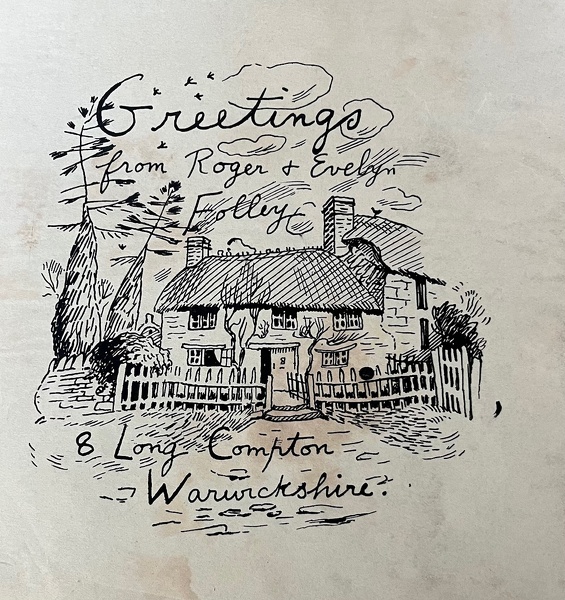 Greetings
from Roger & Evelyn
Folley
8
8 Long Compton
Warwickshire.